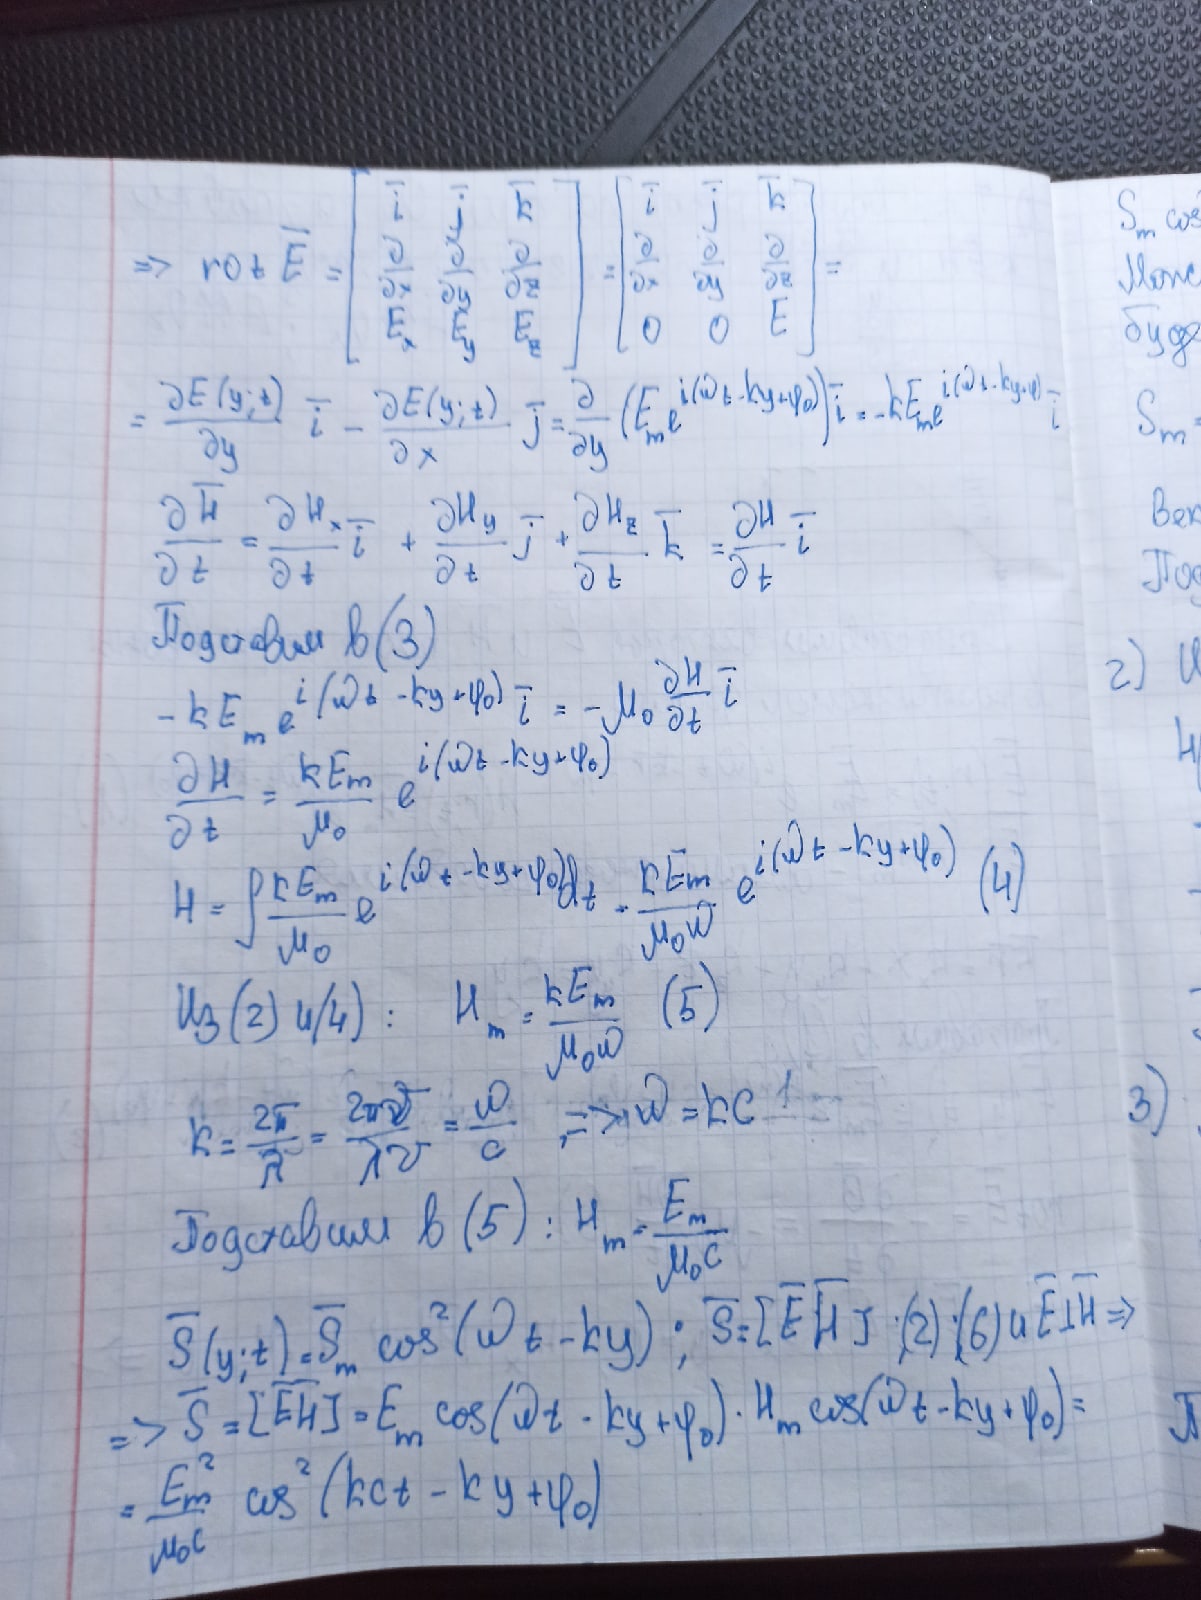 => rot E̅ = [ i̅ j̅ k̅ ; ∂/∂x ∂/∂y ∂/∂z ; Eₓ E_y E_z ] = [ i̅ j̅ k̅ ; ∂/∂x ∂/∂y ∂/∂z ; 0 0 E ] =
= ∂E(y;t)/∂y i̅ - ∂E(y;t)/∂x j̅ = ∂/∂y (E_m e^{i(ωt-ky+φ₀)}) i̅ = -kE_m e^{i(ωt-ky+φ)} i̅
∂H̅/∂t = ∂Hₓ/∂t i̅ + ∂H_y/∂t j̅ + ∂H_z/∂t k̅ = ∂H/∂t i̅
Подставим в (3)
-kE_m e^{i(ωt-ky+φ₀)} i̅ = -μ₀ ∂H/∂t i̅
∂H/∂t = kE_m/μ₀ e^{i(ωt-ky+φ₀)}
H = ∫ kE_m/μ₀ e^{i(ωt-ky+φ₀)} dt = kE_m/μ₀ω e^{i(ωt-ky+φ₀)} (4)
Из (2) и (4): H_m = kE_m/μ₀ω (5)
k = 2π/λ = 2πν/λν = ω/c => ω = kc
Подставим в (5): H_m = E_m/μ₀c
S̅(y;t) = S̅_m cos²(ωt-ky); S̅ = [E̅H̅]; (2); (6) и E̅⊥H̅ =>
=> S̅ = [E̅H̅] = E_m cos(ωt-ky+φ₀)·H_m cos(ωt-ky+φ₀) =
= E_m²/μ₀c cos²(kct-ky+φ₀)
S_m cos
S_m =
2)
3)